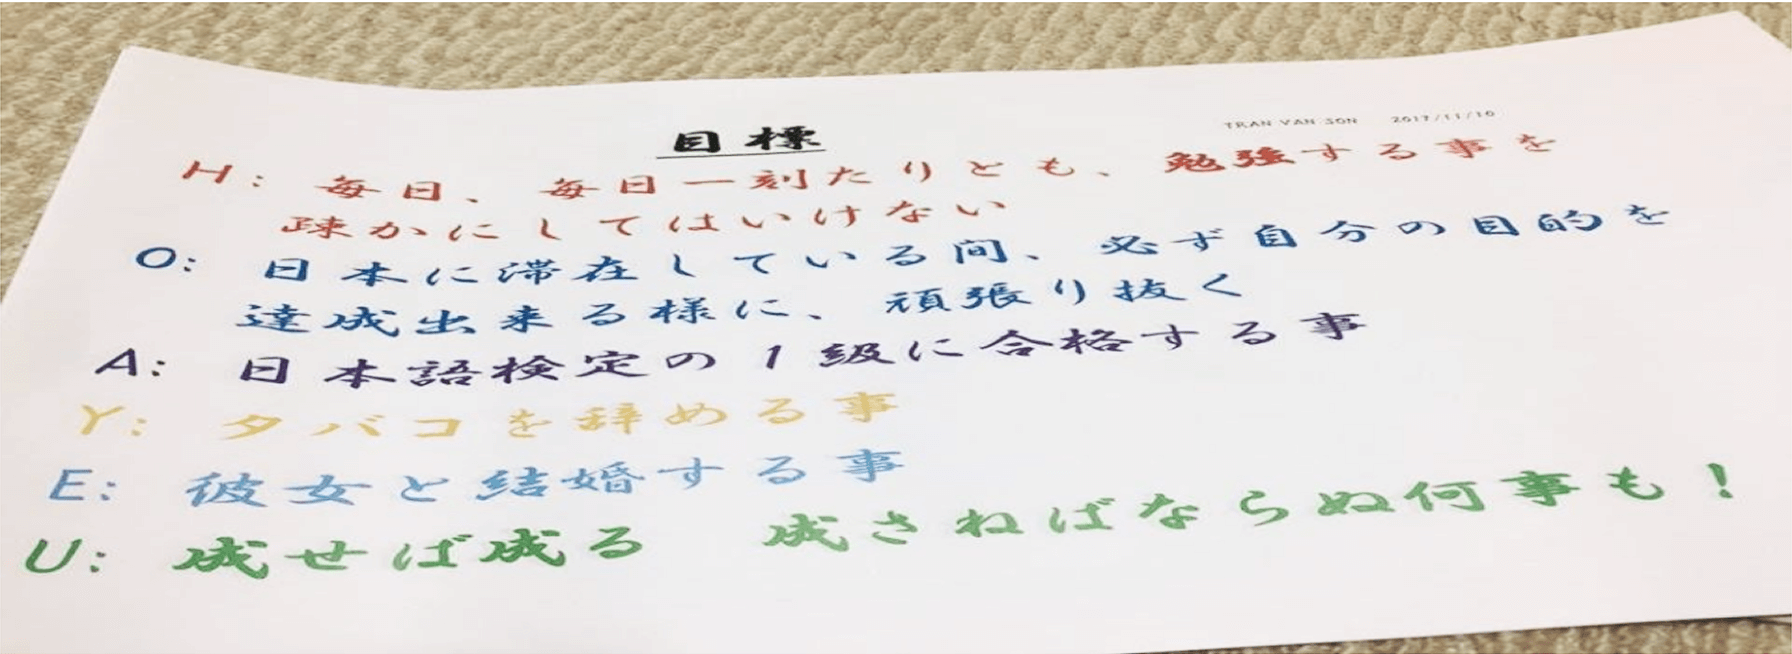 TRAN VAN SON 2017/11/10
目標
H: 毎日、毎日一刻たりとも、勉強する事を
疎かにしてはいけない
O: 日本に滞在している間、必ず自分の目的を
達成出来る様に、頑張り抜く
A: 日本語検定の1級に合格する事
Y: タバコを辞める事
E: 彼女と結婚する事
U: 成せば成る 成さねばならぬ何事も!